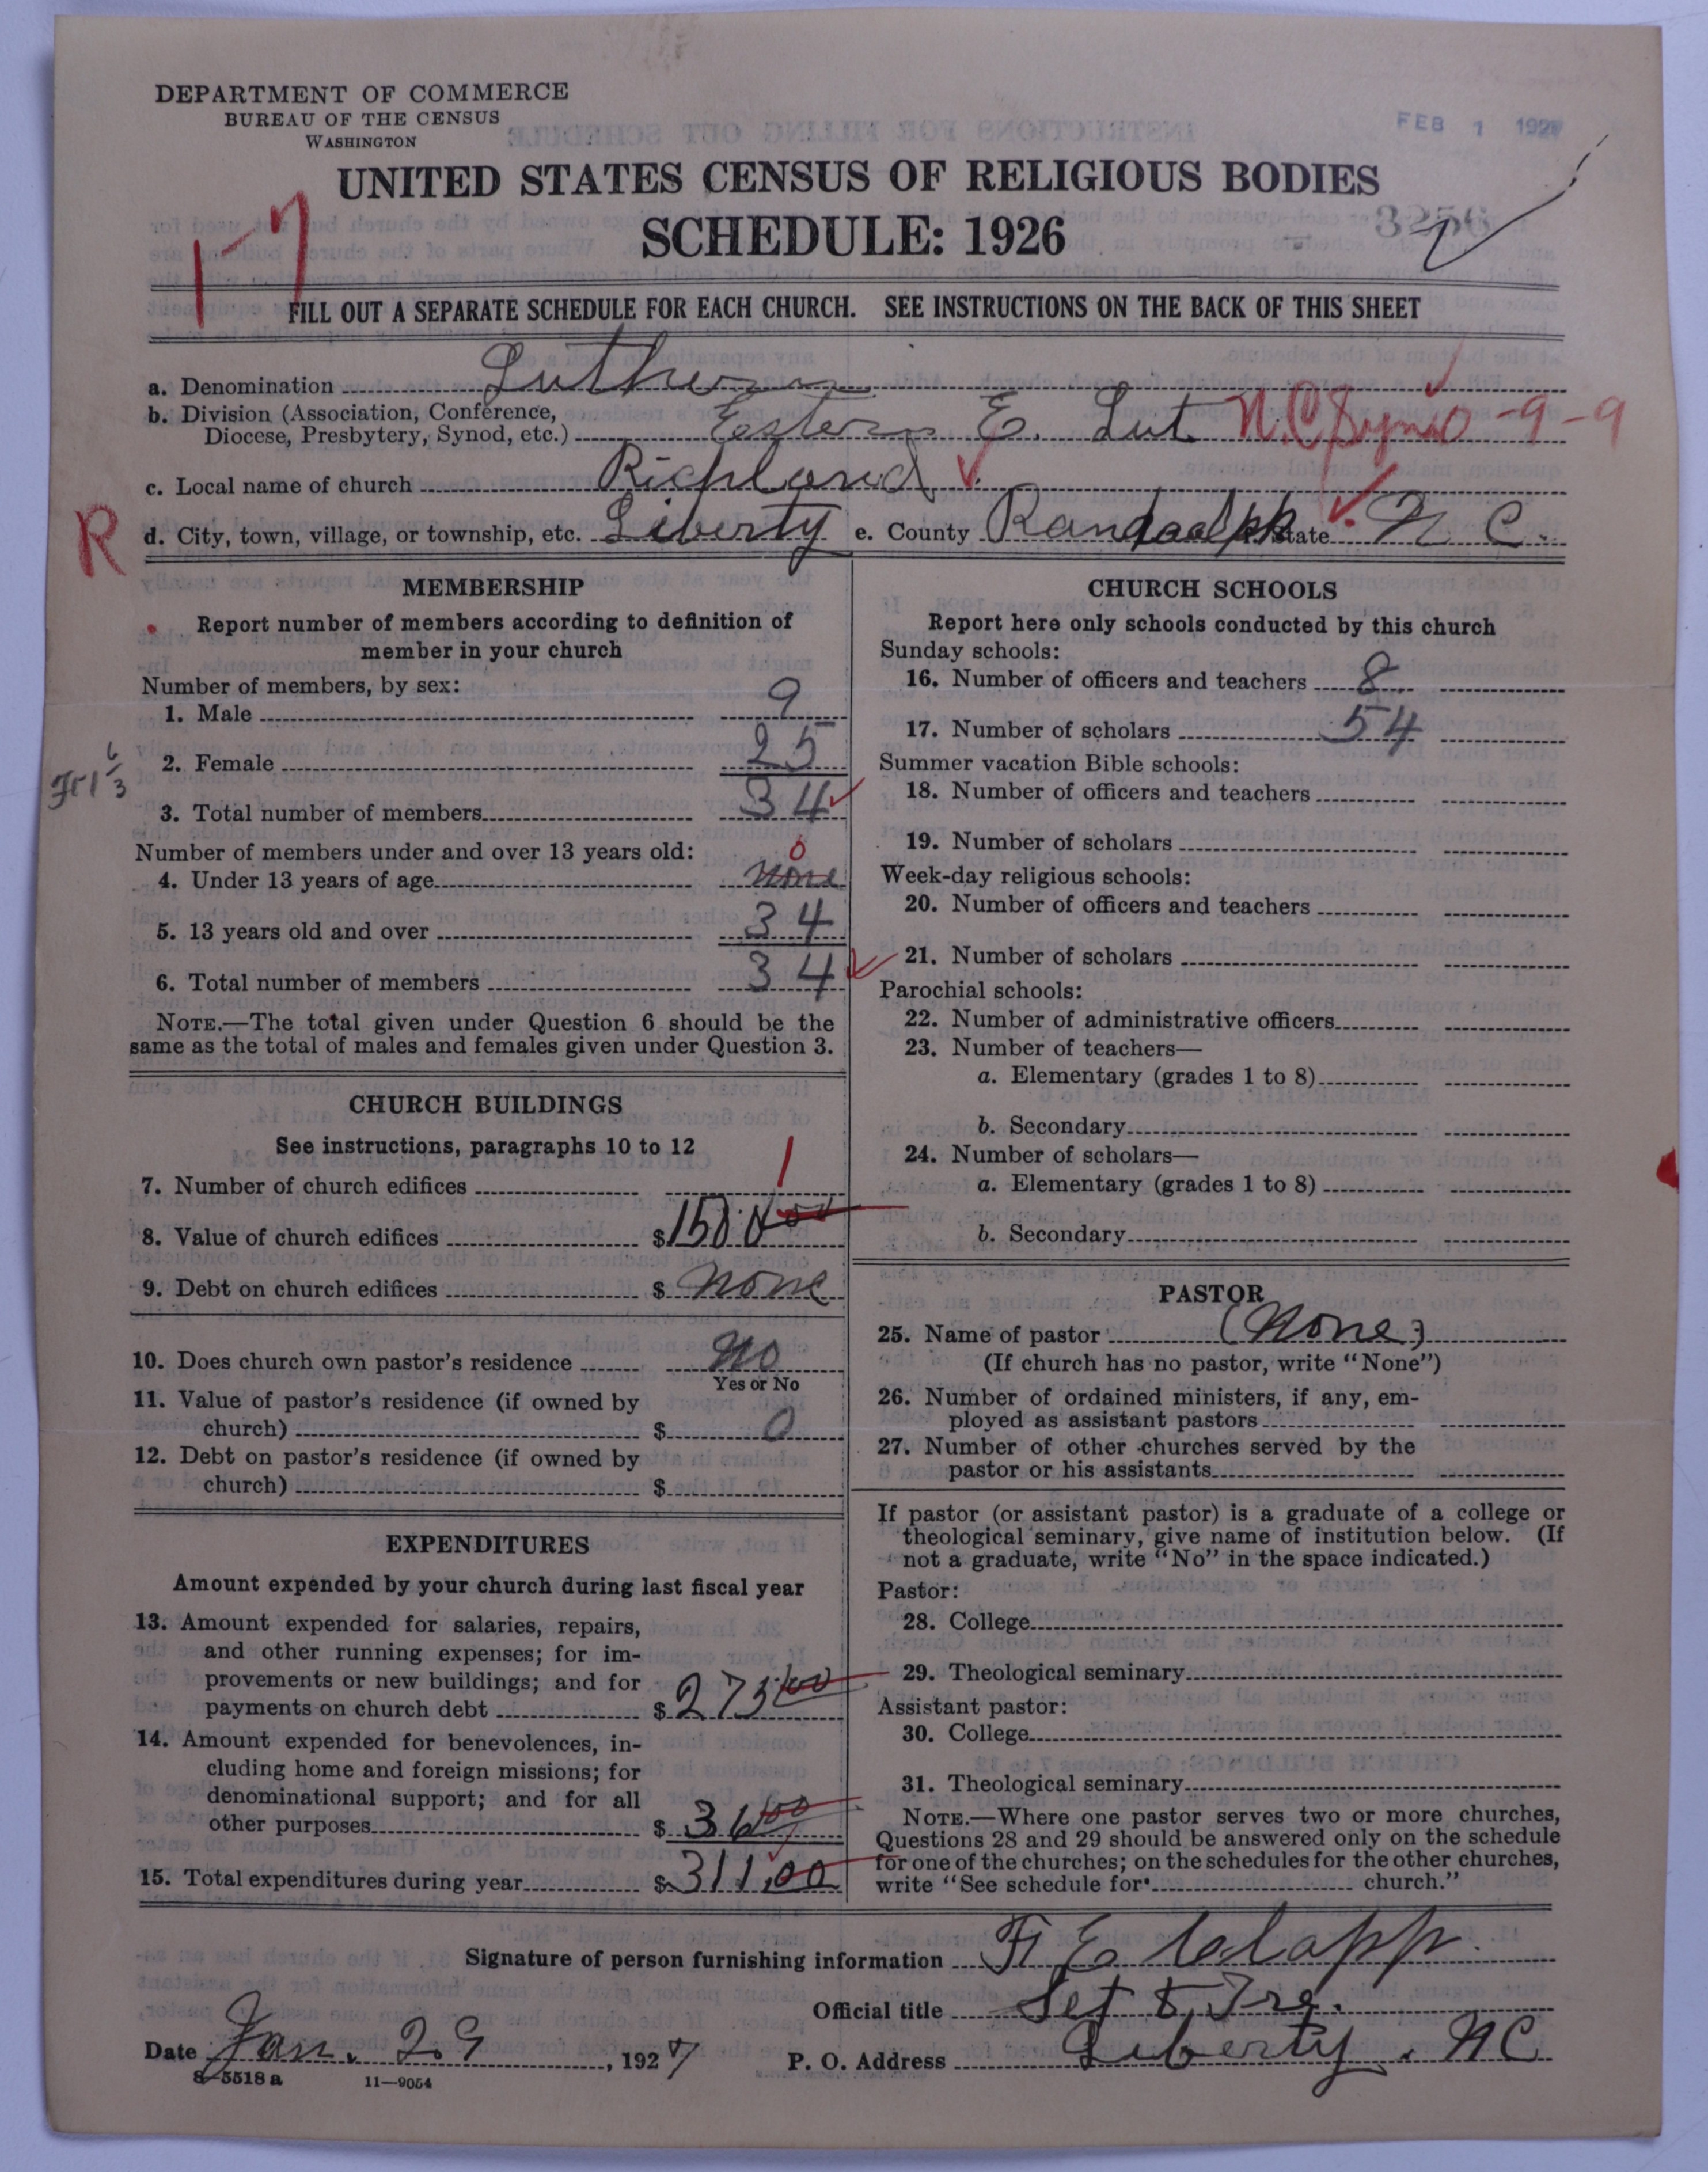 DEPARTMENT OF COMMERCE
BUREAU OF THE CENSUS
WASHINGTON
FEB 1 1927
UNITED STATES CENSUS OF RELIGIOUS BODIES
SCHEDULE: 1926
3256
1-7
FILL OUT A SEPARATE SCHEDULE FOR EACH CHURCH. SEE INSTRUCTIONS ON THE BACK OF THIS SHEET
a. Denomination Lutheran
b. Division (Association, Conference,
Diocese, Presbytery, Synod, etc.) Estern E. Lut N.C. Synod -9-9
c. Local name of church Richland
R
d. City, town, village, or township, etc. Liberty e. County Randoolph State N C.
MEMBERSHIP
Report number of members according to definition of
member in your church
Number of members, by sex:
1. Male 9
2. Female 25
3. Total number of members 34
Number of members under and over 13 years old:
0
4. Under 13 years of age none
5. 13 years old and over 34
6. Total number of members 34
NOTE.—The total given under Question 6 should be the
same as the total of males and females given under Question 3.
CHURCH BUILDINGS
See instructions, paragraphs 10 to 12
7. Number of church edifices 1
8. Value of church edifices $1500 00
9. Debt on church edifices $ none
10. Does church own pastor's residence no
Yes or No
11. Value of pastor's residence (if owned by
church) $ 0
12. Debt on pastor's residence (if owned by
church) $
EXPENDITURES
Amount expended by your church during last fiscal year
13. Amount expended for salaries, repairs,
and other running expenses; for im-
provements or new buildings; and for
payments on church debt $275 00
14. Amount expended for benevolences, in-
cluding home and foreign missions; for
denominational support; and for all
other purposes $ 36 00
15. Total expenditures during year $311.00
CHURCH SCHOOLS
Report here only schools conducted by this church
Sunday schools:
16. Number of officers and teachers 8
17. Number of scholars 54
Summer vacation Bible schools:
18. Number of officers and teachers
19. Number of scholars
Week-day religious schools:
20. Number of officers and teachers
21. Number of scholars
Parochial schools:
22. Number of administrative officers
23. Number of teachers—
a. Elementary (grades 1 to 8)
b. Secondary
24. Number of scholars—
a. Elementary (grades 1 to 8)
b. Secondary
PASTOR
25. Name of pastor (None)
(If church has no pastor, write "None")
26. Number of ordained ministers, if any, em-
ployed as assistant pastors
27. Number of other churches served by the
pastor or his assistants
If pastor (or assistant pastor) is a graduate of a college or
theological seminary, give name of institution below. (If
not a graduate, write "No" in the space indicated.)
Pastor:
28. College
29. Theological seminary
Assistant pastor:
30. College
31. Theological seminary
NOTE.—Where one pastor serves two or more churches,
Questions 28 and 29 should be answered only on the schedule
for one of the churches; on the schedules for the other churches,
write "See schedule for church."
Signature of person furnishing information F E Clapp.
Official title Set & Tre.
Date Jan. 29, 1927 P. O. Address Liberty. NC
8-5518a 11—9054